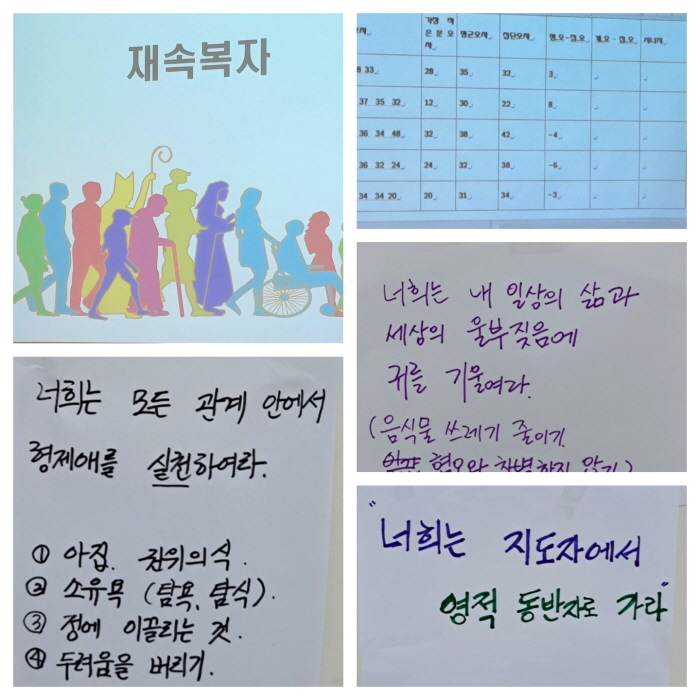 재속복자
가장 적
은 분 오
차
평균오차
집단오차
평.오-집.오
개.오 - 집.오
시너지
8 33
28
35
32
3
37 35 32
12
30
22
8
36 34 48
32
38
42
-4
36 32 24
24
32
38
-6
34 34 20
20
31
34
-3
너희는 내 일상의 삶과
세상의 울부짖음에
귀를 기울여라.
(음식물 쓰레기 줄이기
혐오와 차별하지 않기)
너희는 모든 관계 안에서
형제애를 실천하여라.
① 아집. 권위의식.
② 소유욕 (탐욕, 탐식).
③ 정에 이끌리는 것.
④ 두려움을 버리기.
"너희는 지도자에서
영적 동반자로 가라"